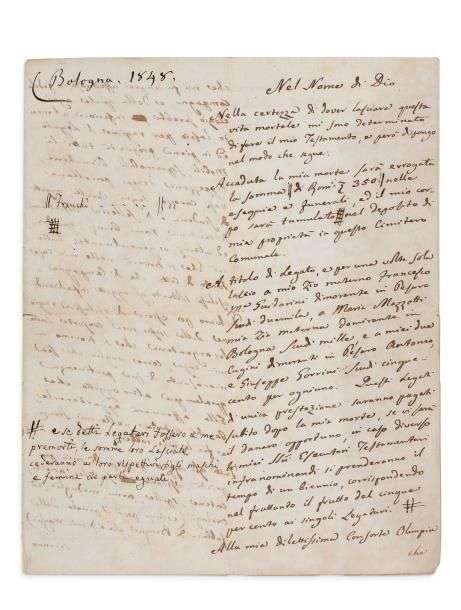 Bologna. 1848.
Nel Nome di Dio
Nella certezza di dover lasciare questa
vita mortale mi sono determinato
di fare il mio Testamento, e però dispongo
nel modo che segue.
Accaduta la mia morte sarà erogata
la somma di Romi 350 nelle
esequie e funerali, ed il mio cor-
po sarà tumulato nel deposito di
mia proprietà in questo Cimitero
Comunale.
A titolo di Legato, e per una volta sola
lascio a mio Zio materno Francesco
Guidarini dimorante in Pesaro
Scudi duemila, a Maria Mazzotti
mia Zia materna domiciliante in
Bologna Scudi mille, e a miei due
Cugini dimoranti in Pesaro Antonio
e Giuseppe Gorrini Scudi cinque-
cento per ognuno. Questi Legati
d'unica prestazione saranno pagati
subito dopo la mia morte, se vi sarà
il danaro opportuno, in caso diverso
i miei SSri Esecutori Testamentari
infranominandi si prenderanno il
tempo di un biennio, corrispondendo
nel frattanto il frutto del cinque
per cento ai singoli Legatari. #
Alla mia dilettissima Consorte Olimpia
che
Franchi
# e se detti Legatari fossero a me
premorti, le somme loro Lasciate
cederanno ai loro rispettivi figli maschi
e femine in parti eguali.